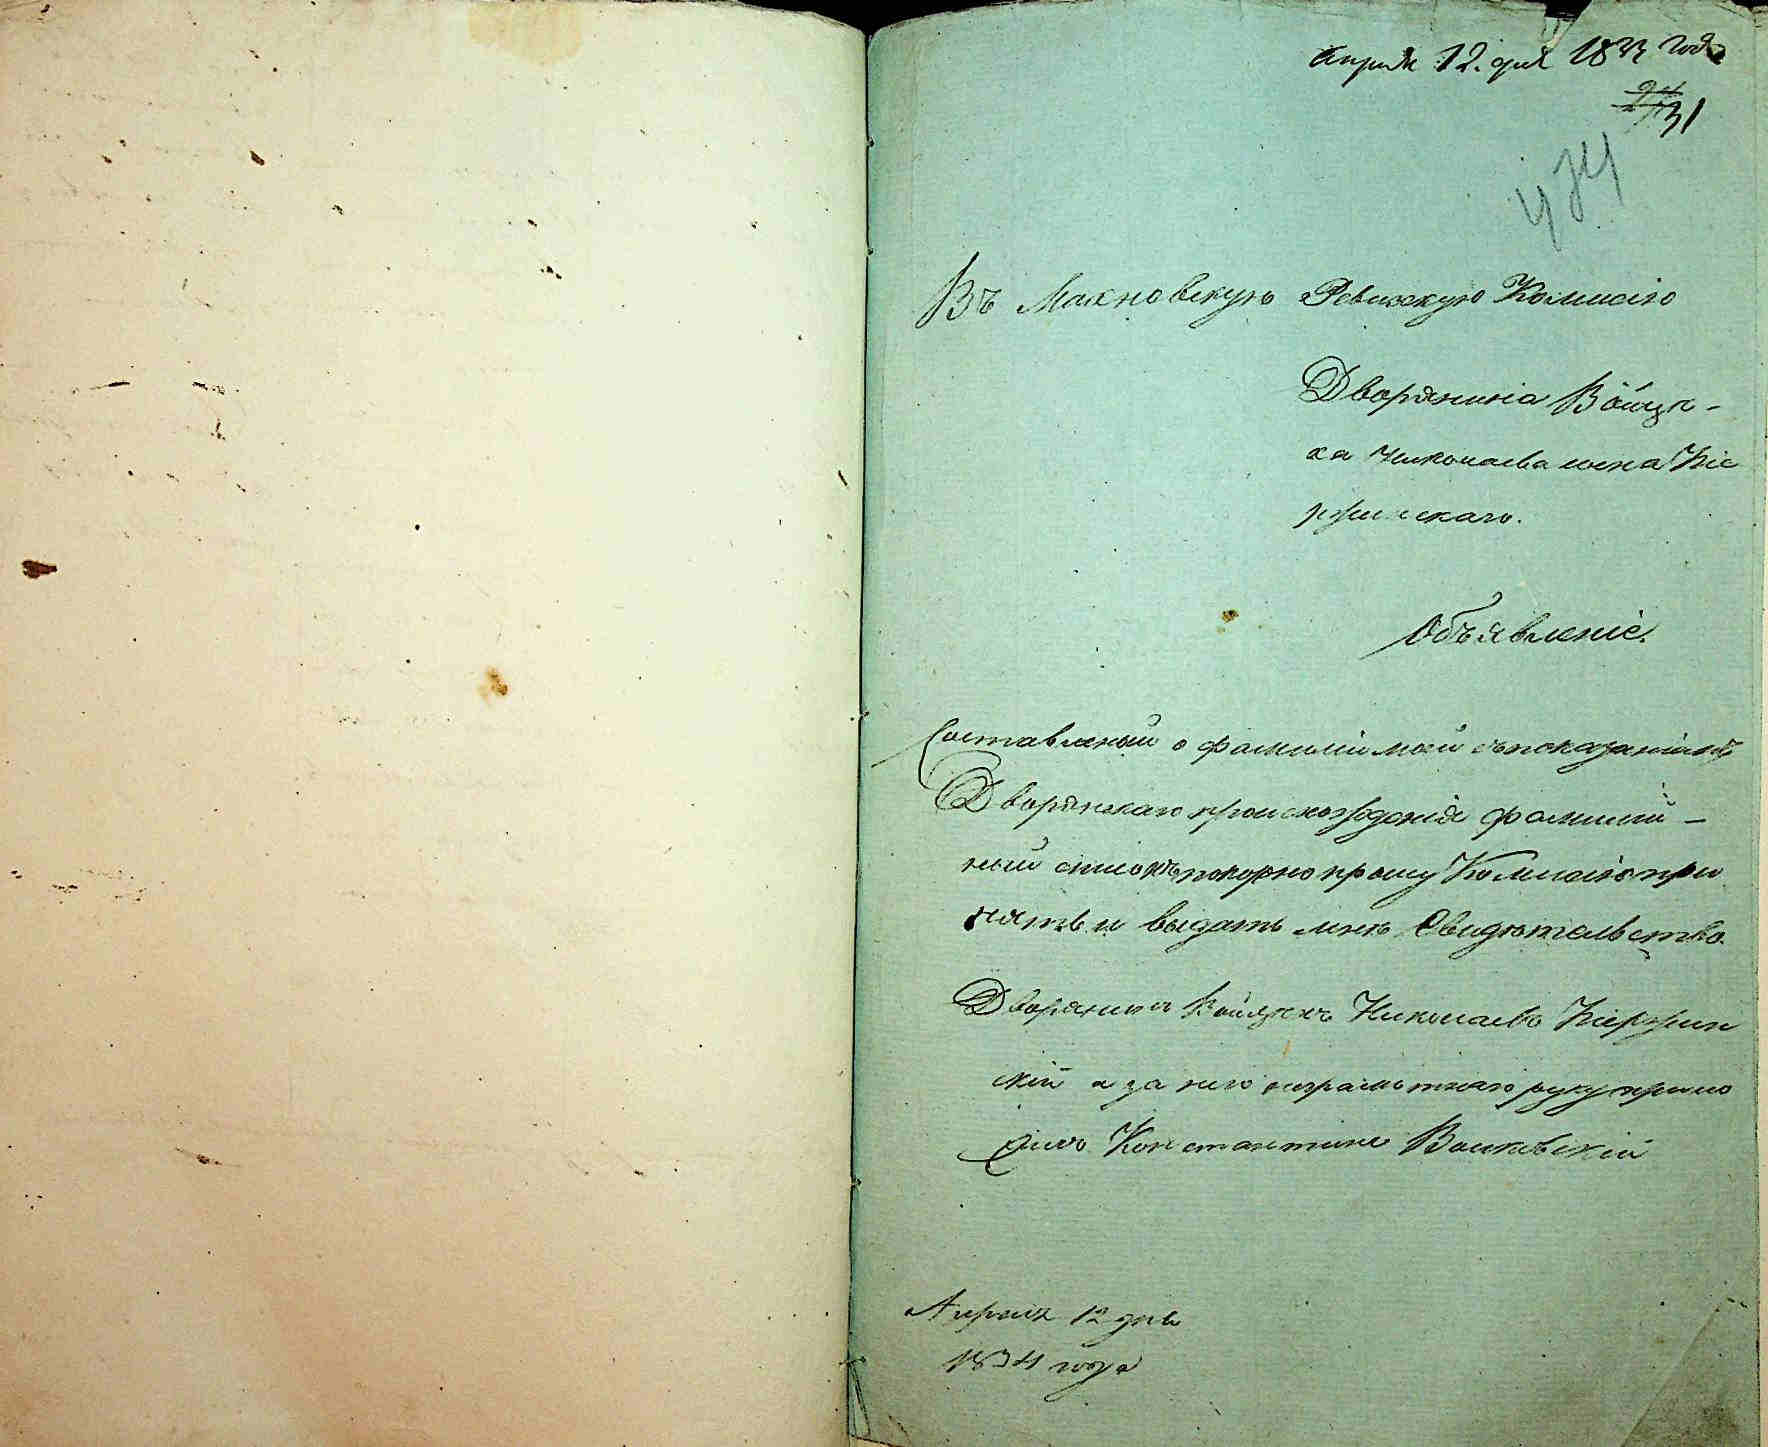 Апреля 12. дня 1834 года
31
474
Въ Махновскую Ревизскую Комисію
Дворянина Войцѣ-
ха Николаева сына Кіе
ржинскаго.
Объявленіе.
Составленый о фамиліи моей съ показаніемъ
Дворянскаго происхожденія фамилій-
ный списокъ покорно прошу Комисію при
нять и выдать мнѣ Свидѣтельство.
Дворянинъ Войцѣхъ Николаевъ Кіержин
скій а за него неграмотнаго руку прило
жилъ Константинъ Вольковскій
Апреля 12 дня
1834 года